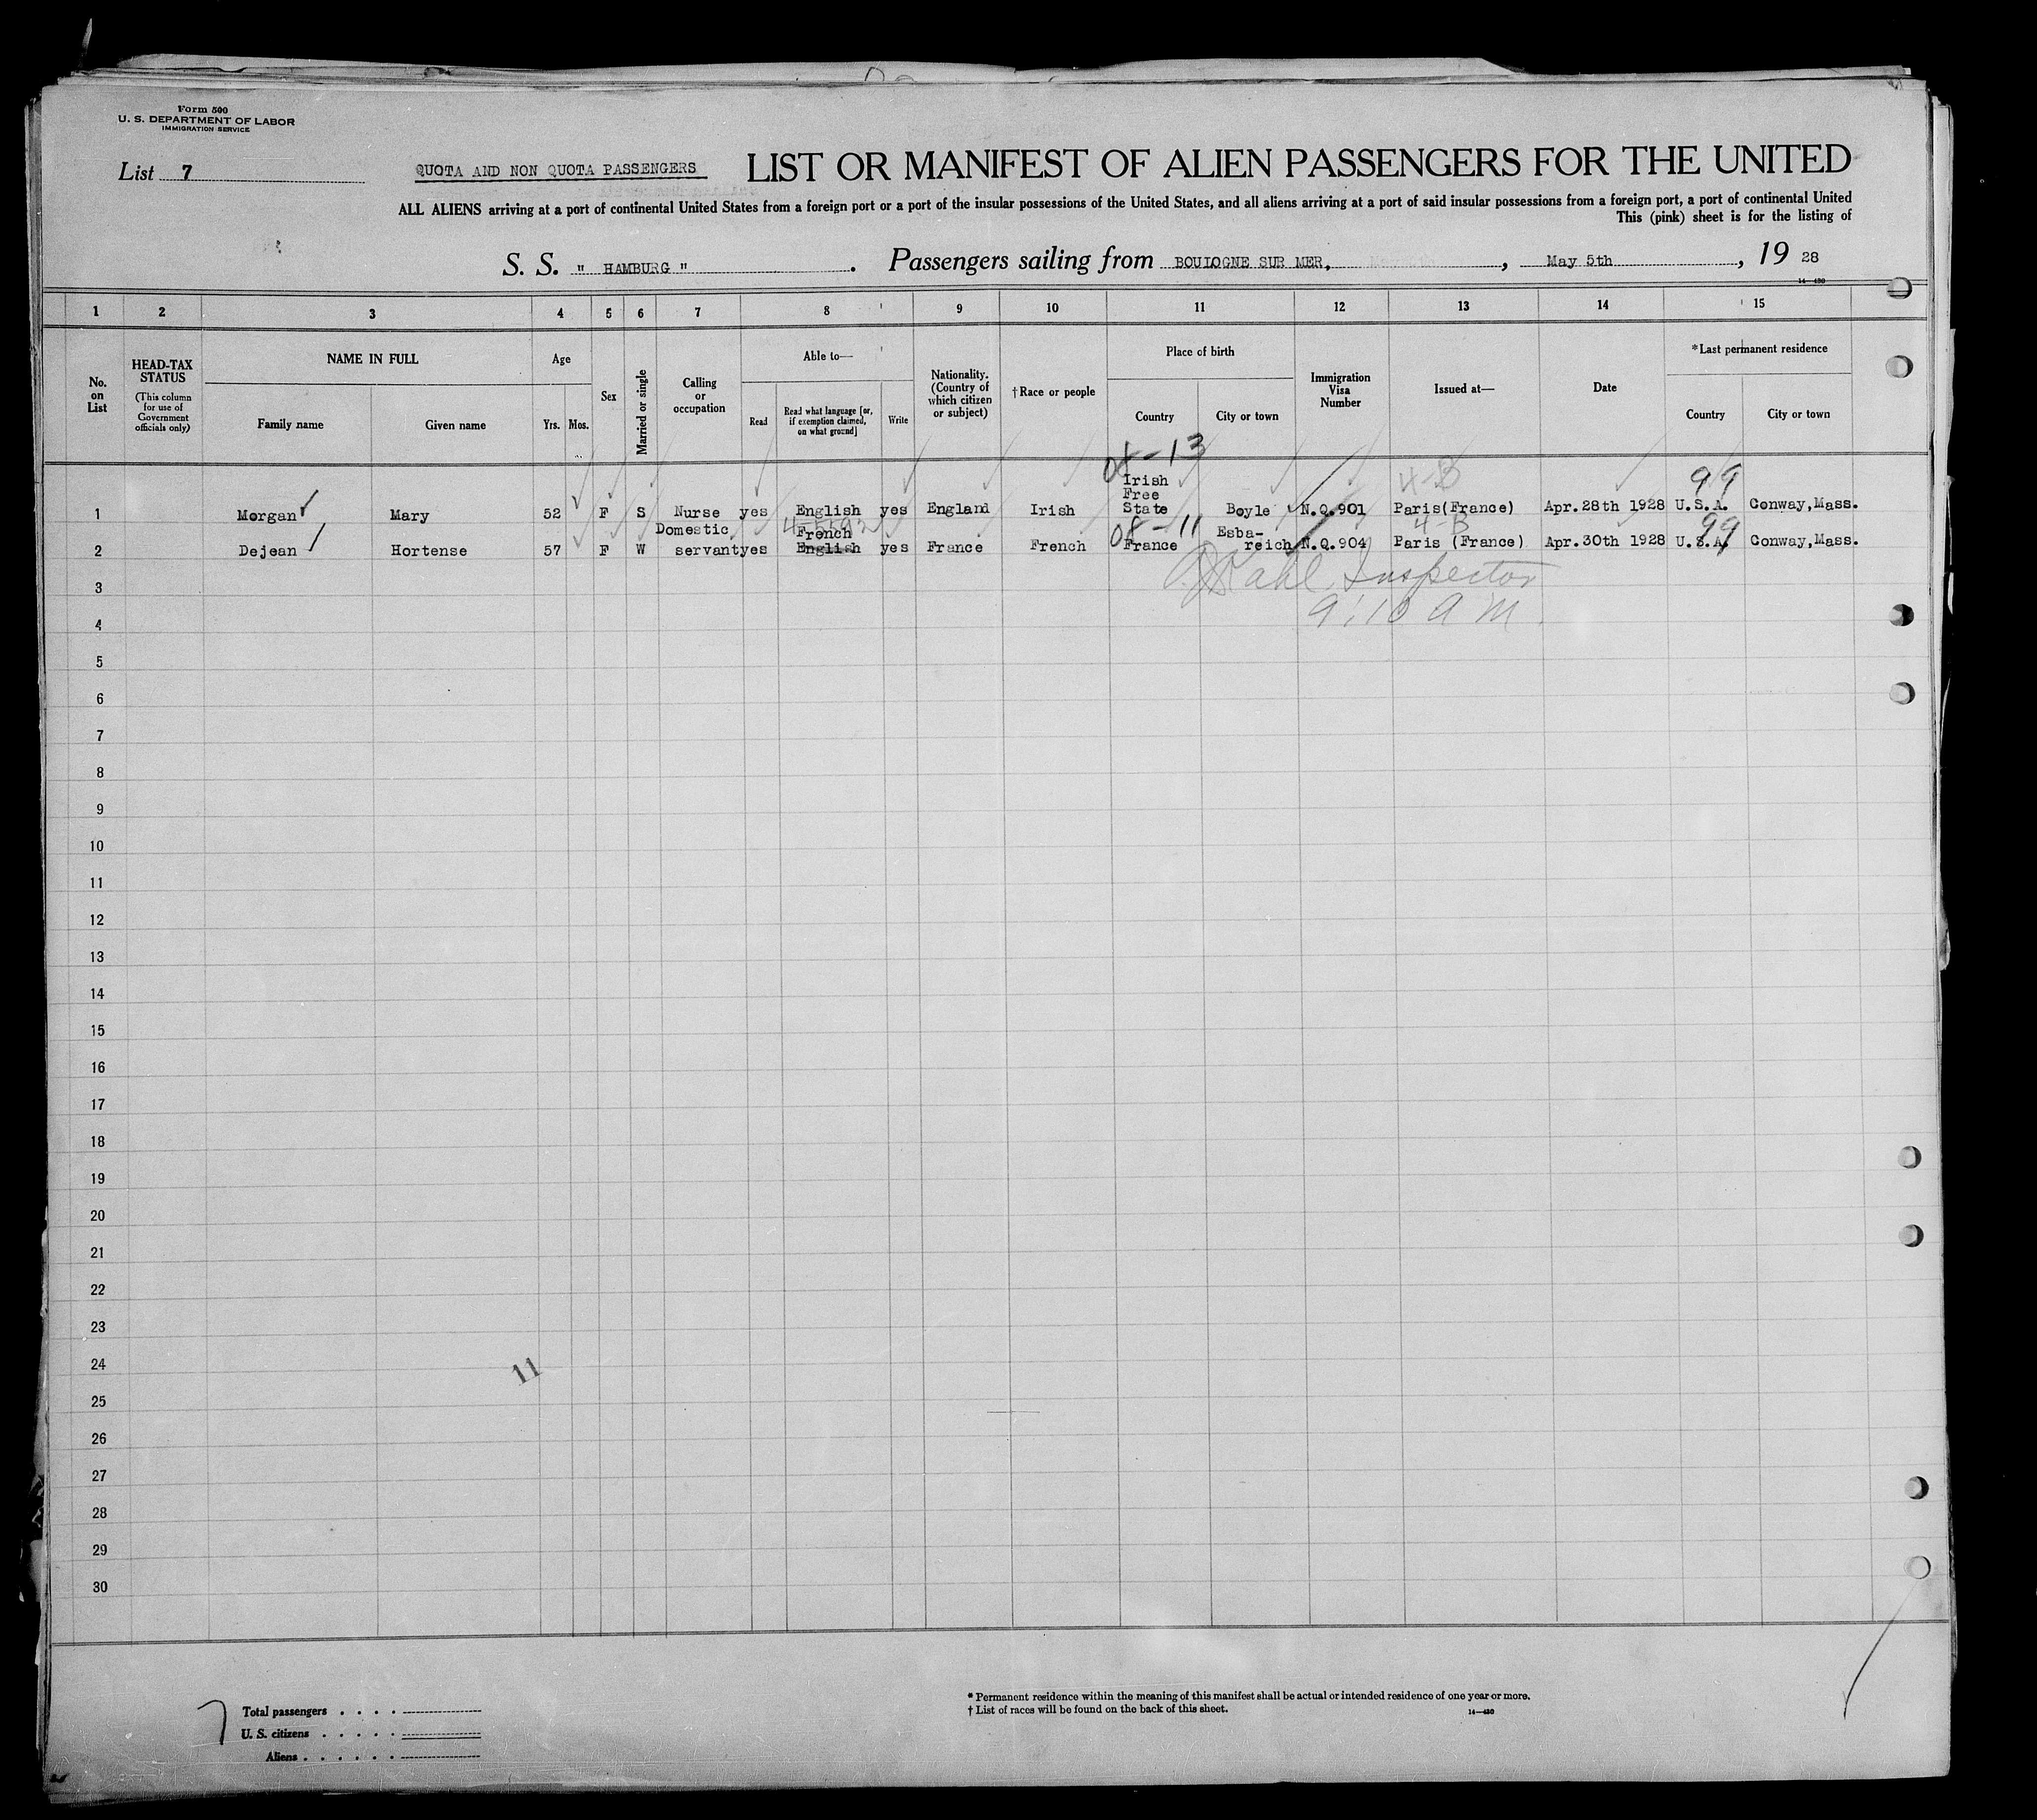 Form 500
U. S. DEPARTMENT OF LABOR
IMMIGRATION SERVICE
List 7
QUOTA AND NON QUOTA PASSENGERS
LIST OR MANIFEST OF ALIEN PASSENGERS FOR THE UNITED
ALL ALIENS arriving at a port of continental United States from a foreign port or a port of the insular possessions of the United States, and all aliens arriving at a port of said insular possessions from a foreign port, a port of continental United
This (pink) sheet is for the listing of
S. S. " HAMBURG ". Passengers sailing from BOULOGNE SUR MER, , May 5th , 19 28
14—430
1 2 3 4 5 6 7 8 9 10 11 12 13 14 15
No. on List
HEAD-TAX STATUS (This column for use of Government officials only)
NAME IN FULL
Family name Given name
Age
Yrs. Mos.
Sex
Married or single
Calling or occupation
Able to—
Read
Read what language [or, if exemption claimed, on what ground]
Write
Nationality. (Country of which citizen or subject)
†Race or people
Place of birth
Country City or town
Immigration Visa Number
Issued at—
Date
*Last permanent residence
Country City or town
08-13 4-B 99
1 Morgan Mary 52 F S Nurse yes English yes England Irish Irish Free State Boyle N.Q.901 Paris(France) Apr.28th 1928 U.S.A. Conway,Mass.
08-11 4-B 99
2 Dejean Hortense 57 F W Domestic servant yes French English yes France French France Esba-reich N.Q.904 Paris (France) Apr.30th 1928 U.S.A. Conway,Mass.
Inspector
9:10 A M.
3
4
5
6
7
8
9
10
11
12
13
14
15
16
17
18
19
20
21
22
23
24
11
25
26
27
28
29
30
* Permanent residence within the meaning of this manifest shall be actual or intended residence of one year or more.
† List of races will be found on the back of this sheet.
14—430
7
Total passengers
U. S. citizens
Aliens